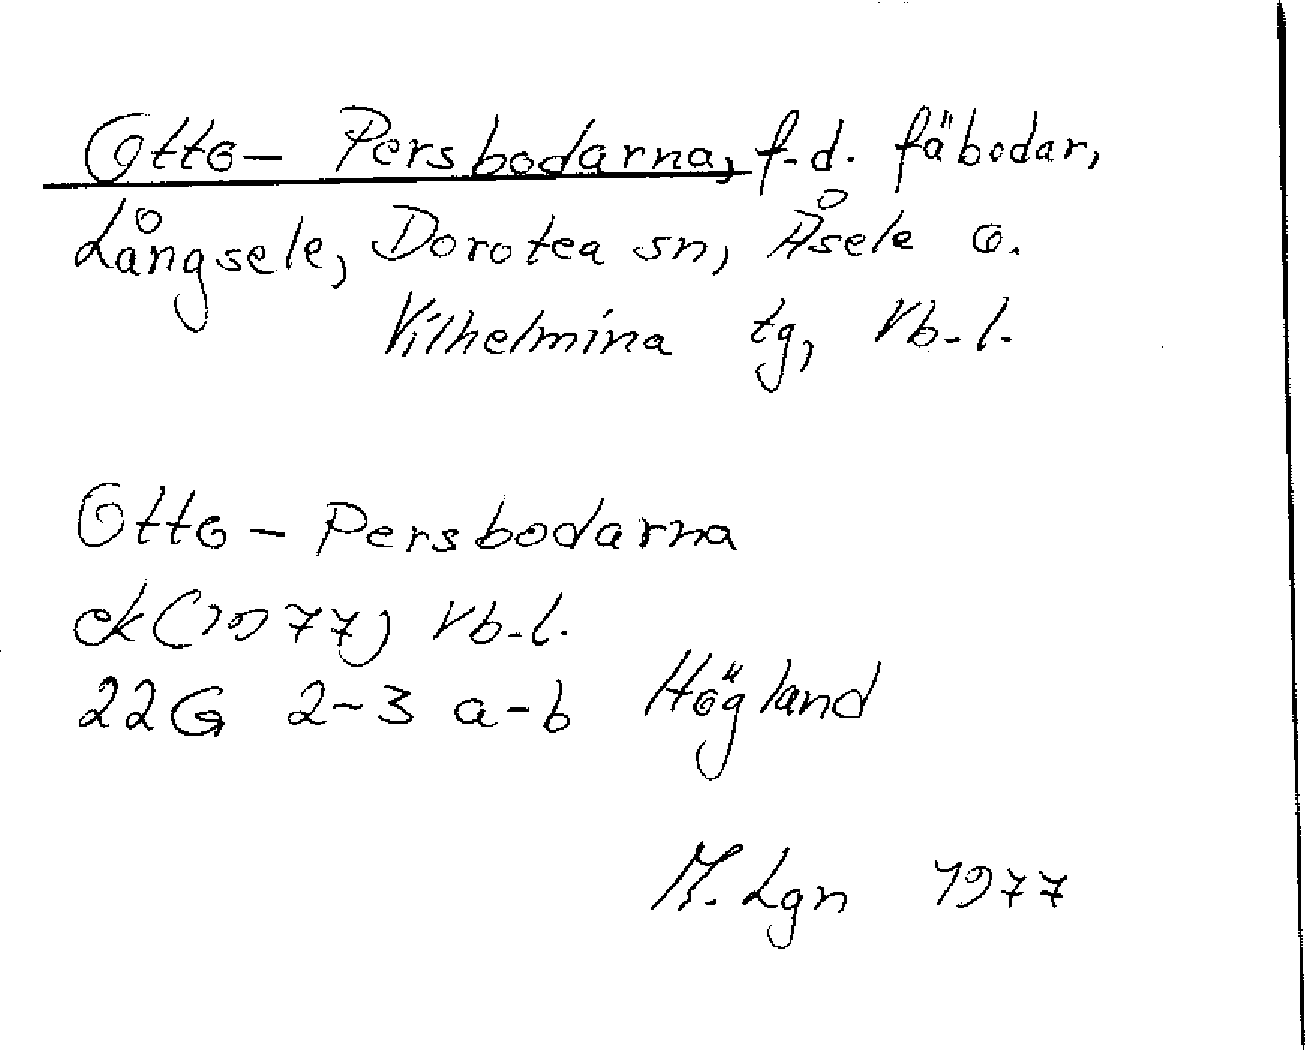 Otto-Persbodarna, f.d. fäbodar,
Långsele, Dorotea sn, Åsele o.
Vilhelmina tg, Vb.l.
Otto-Persbodarna
ek (1977) Vb.l.
22G 2-3 a-b Högland
M. Lgn 1977